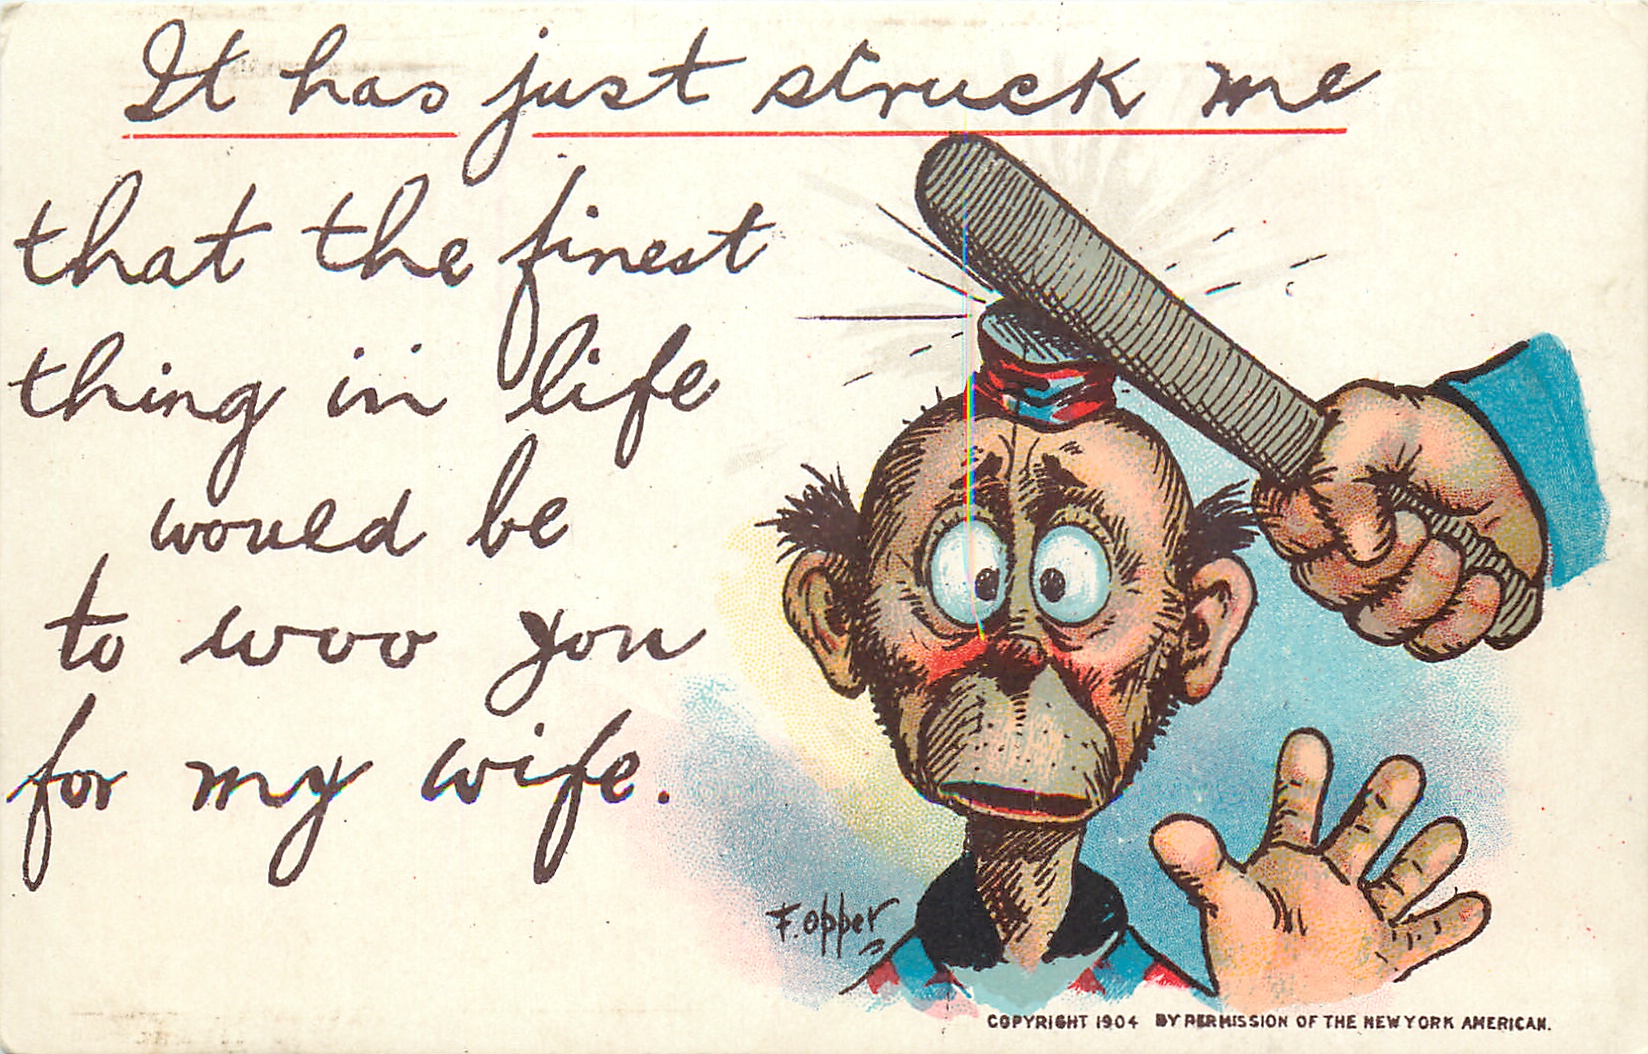 It has just struck me
that the finest
thing in life
would be
to woo you
for my wife.
F. Opper
COPYRIGHT 1904 BY PERMISSION OF THE NEW YORK AMERICAN.